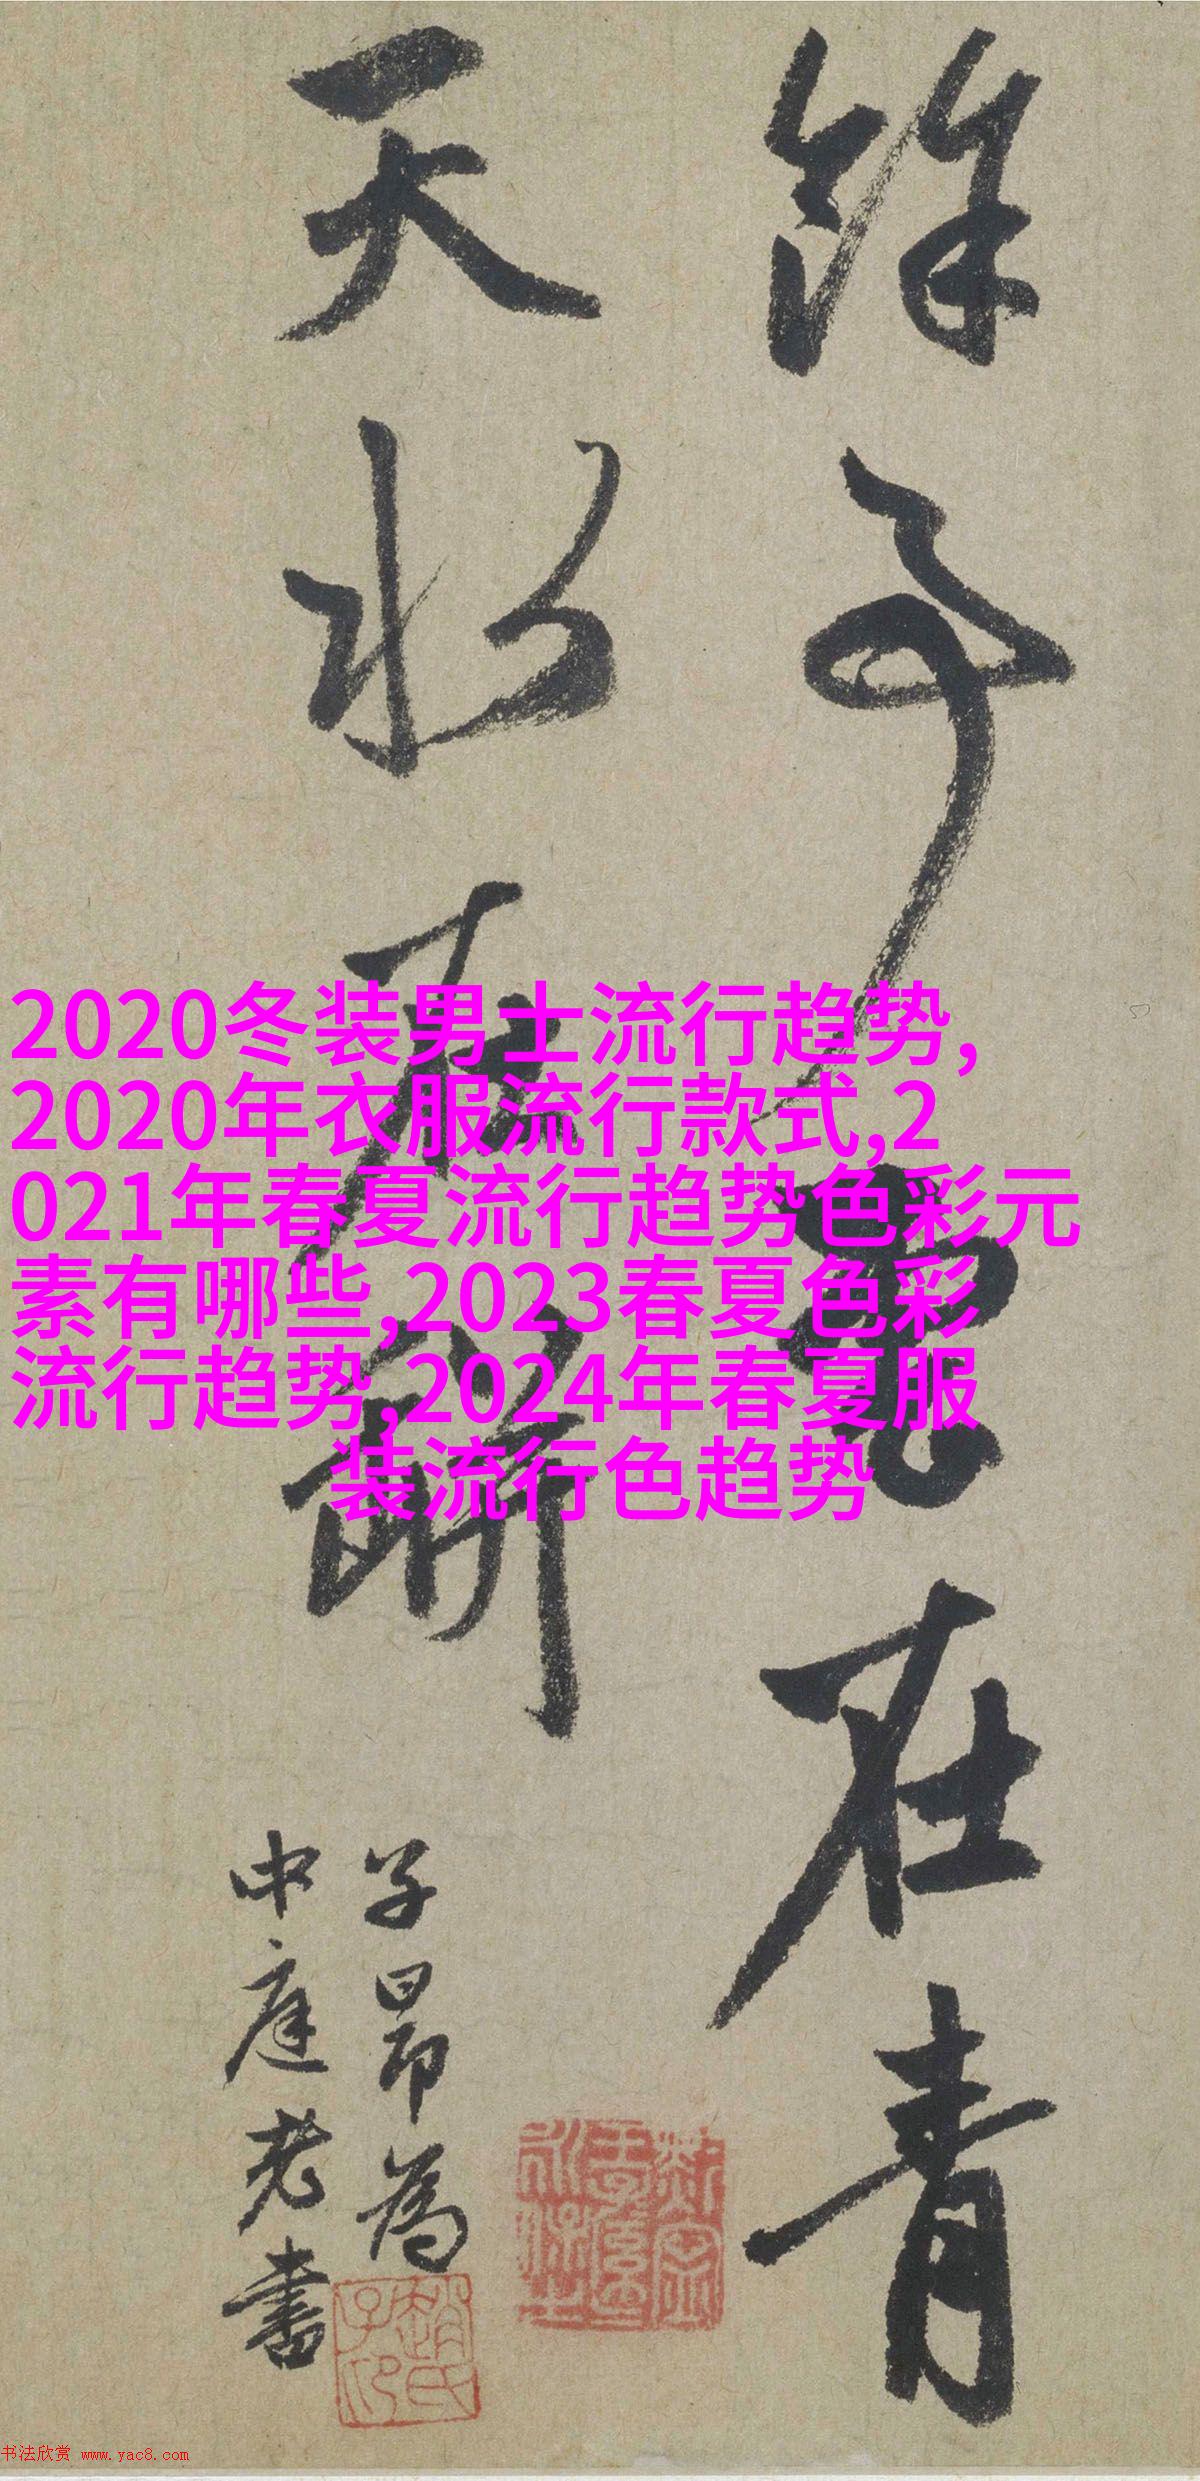 餘事雲在青
天水在瓶
子昂為
中庭老書
趙氏子印
2020冬装男士流行趋势,
2020年衣服流行款式,2
021年春夏流行趋势色彩元
素有哪些,2023春夏色彩
流行趋势,2024年春夏服
装流行色趋势
书法欣赏 www.yac8.com